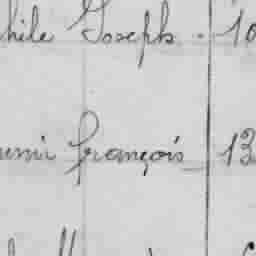 hile Joseph. 10
umi françois 13